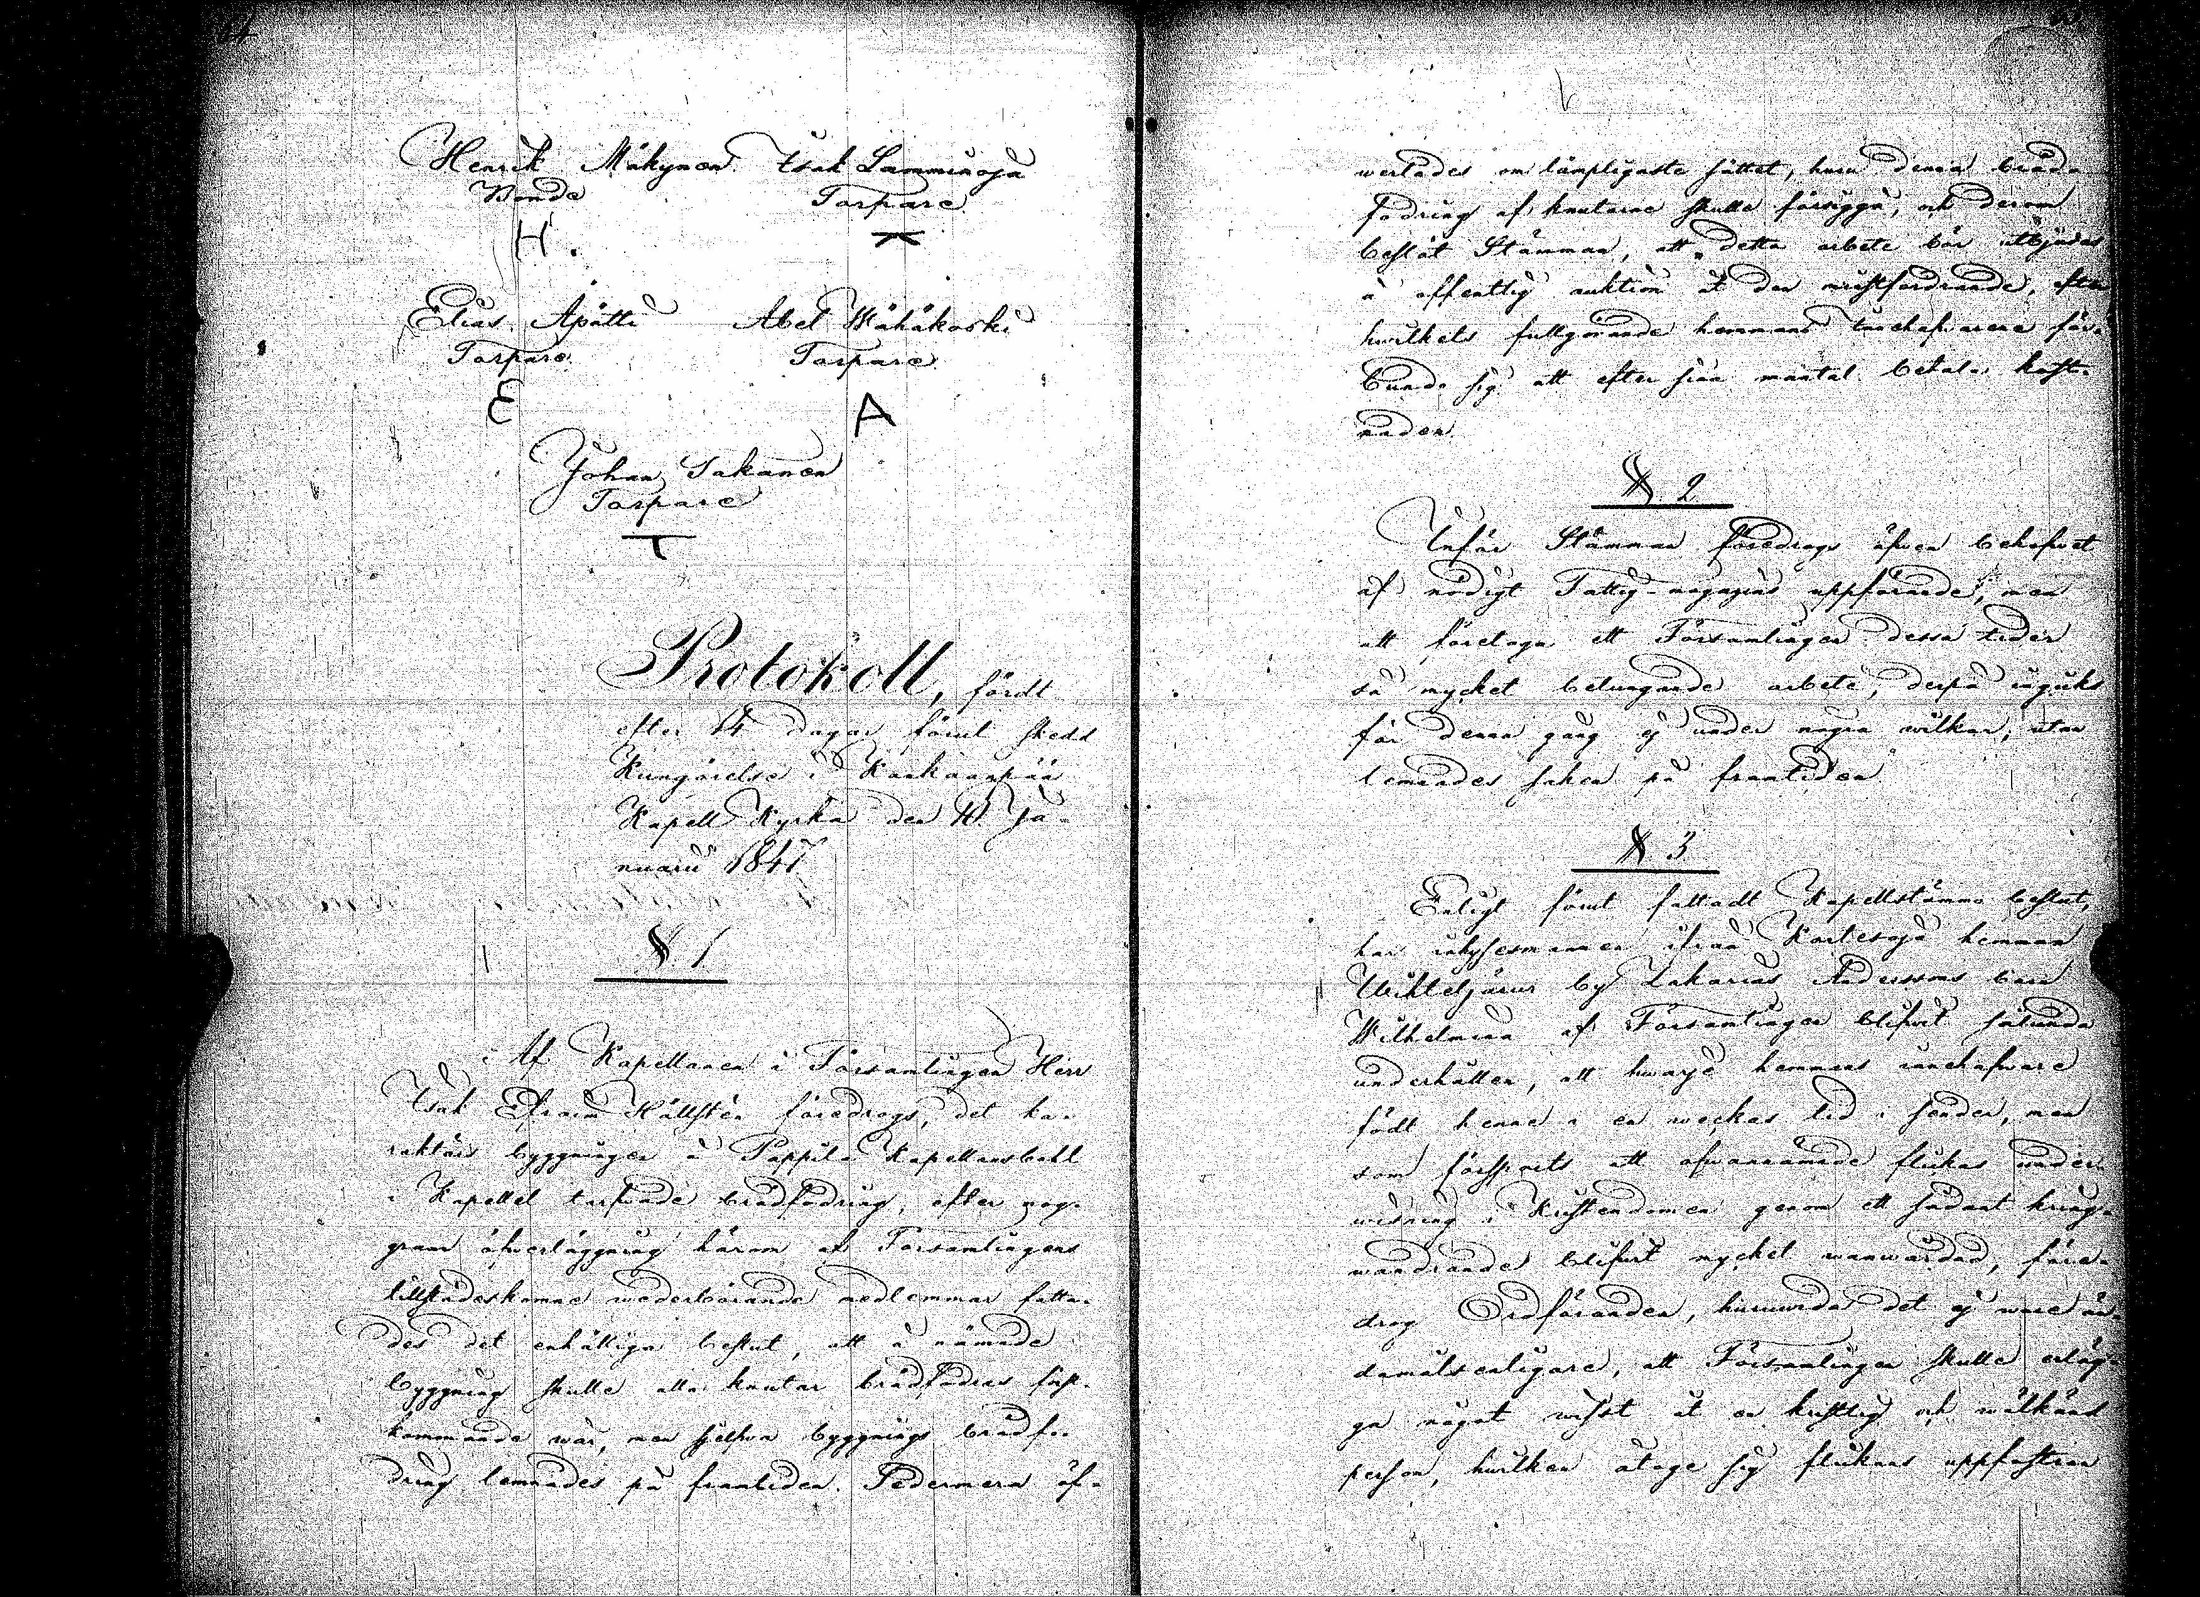 64
Henrik Mäkynen Isak Lamminoja
Bonde Torpare
H.
Elias Äpätti Abel Wähäkoski
Torpare Torpare
E A
Johan Sakanen
Torpare
T
Protokoll, fördt
efter 14 dagar förut skedd
Kungörelse i Kankaanpää
Kapell Kyrka den 10 Ja-
nuarii 1847
§. 1
Af Kapellanen i Församlingen Herr
Isak Efraim Hällsten föredrogs, det ka-
raktärs byggningen å Pappila Kapellansbohl
i Kapellet tarfvade brädfodring, efter nog-
gran öfverläggning härom af Församlingens
tillstädeskomne wederbörande medlemmar fatta-
des det enhälliga beslut, att å nämnde
byggning skulle alla knutar brädfodras först-
kommande wår, men sjelfva byggnings brädfo-
dring lemnades på framtiden. Sedermera öf-
werlades om lämpligaste sättet, huru denna bräd-
fodring af knutarne skulle försiggå, och derom
beslöt Stämman, att detta arbete bör utbjudas
å offentlig auktion åt den minstfordrande, efter
hwilkets fullgörande hemmans innehafvarene för-
bundo sig att efter sina mantal betala kost-
naden.
§ 2
Inför Stämman föredrogs äfven behofvet
af nödigt Fattig-magazins uppförande, men
att företaga ett Församlingen dessa tider
så mycket betungande arbete, derpå ingicks
för denna gång ej under några wilkor, utan
lemnades saken på framtiden.
§ 3
Enligt förut fattadt Kapellstämmo beslut,
har inhysesmannen ifrån Karlesoja hemman
Wihteljärwi by Zakarias Anderssons barn
Wilhelmina af Församlingen blifvit sålunda
underhållen, att hwarje hemmans innehafware
födt henne i en weckas tid i sender, men
som försports att ofwannämnde flickas under-
wisning i Kristendomen genom ett sådant kring-
wandrande blifvit mycket wanwårdad, före-
drog Ordföranden, huruvida det ej wore än-
damålsenligare, att Församlingen skulle erläg-
ga något wisst åt en kristlig och wälkänd
person, hwilken åtoge sig flickans uppfostran